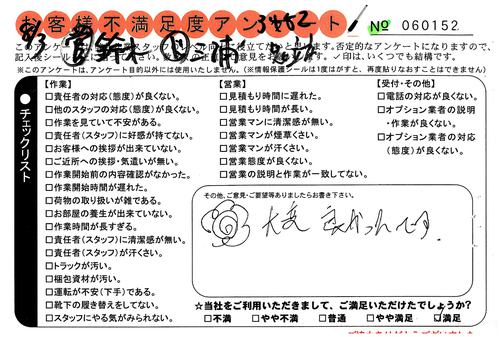 お客様不満足度アンケート
3462
No 060152
このアンケートは
スタッフ
に役立てたいと思います。否定的なアンケートになりますので、
記入後シール
ご意見をお
✓印は、いくつでも結構です。
※このアンケートは、アンケート目的以外には使用いたしません。(※情報保護シールは1度はがすと、再度貼りなおすことはできません)
チェックリスト
【作業】
□責任者の対応(態度)が良くない。
□他のスタッフの対応(態度)が良くない。
□作業を見ていて不安がある。
□責任者(スタッフ)に好感が持てない。
□お客様への挨拶が出来ていない。
□ご近所への挨拶・気遣いが無い。
□作業開始前の内容確認がなかった。
□作業開始時間が遅れた。
□荷物の取り扱いが雑である。
□お部屋の養生が出来ていない。
□作業時間が長すぎる。
□責任者(スタッフ)に清潔感が無い。
□責任者(スタッフ)が汗くさい。
□トラックが汚い。
□梱包資材が汚い。
□運転が不安(下手)である。
□靴下の履き替えをしてない。
□スタッフにやる気がみられない。
【営業】
□見積もり時間に遅れた。
□見積もり時間が長い。
□営業マンに清潔感が無い。
□営業マンが煙草くさい。
□営業マンが汗くさい。
□営業態度が良くない。
□営業の説明と作業が一致してない。
【受付・その他】
□電話の対応が良くない。
□オプション業者の説明
・作業が良くない。
□オプション業者の対応
(態度)が良くない。
その他、ご意見・ご要望等ありましたらお書き下さい。
大変良かったです。
☆当社をご利用いただきまして、ご満足いただけたでしょうか?
□不満 □やや不満 □普通 □やや満足 □満足